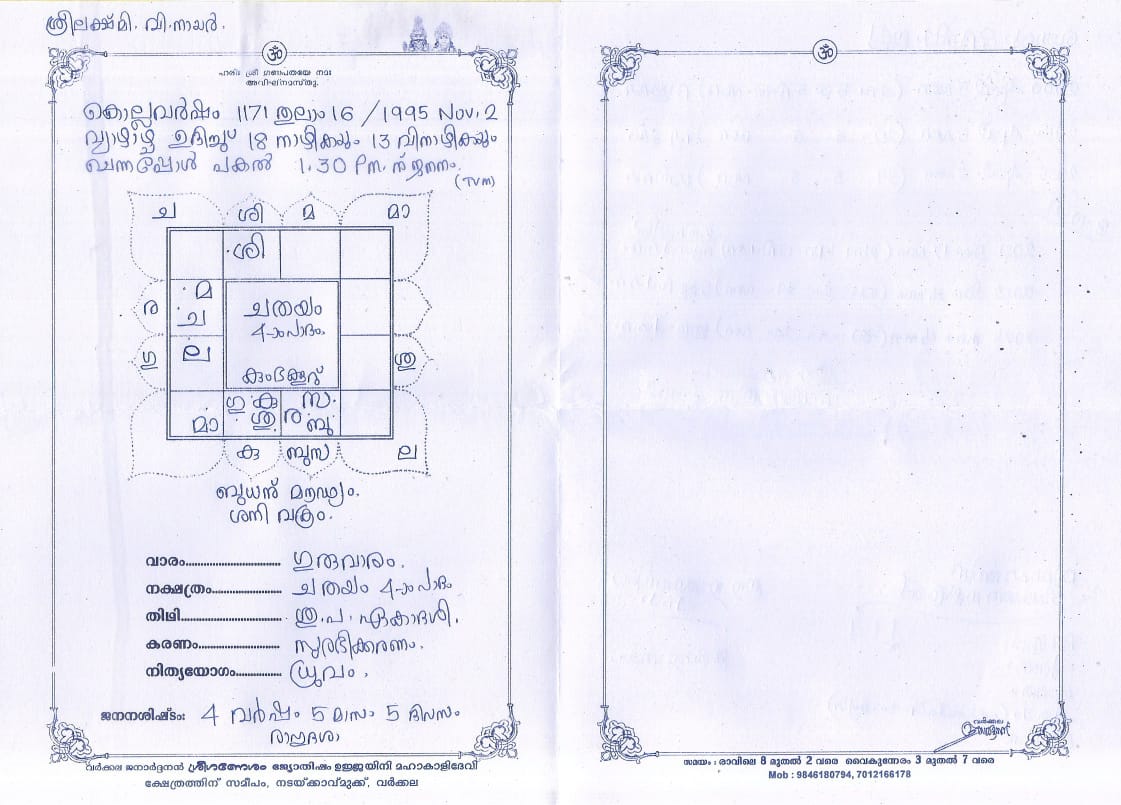 ശ്രീലക്ഷ്മി. വി. നായർ.
ഹരിഃ ശ്രീ ഗണപതയേ നമഃ
അവിഘ്നമസ്തു
കൊല്ലവർഷം 1171 തുലാം 16 / 1995 Nov. 2
വ്യാഴാഴ്ച ഉദിച്ച് 18 നാഴികയും 13 വിനാഴികയും
ചെന്നപ്പോൾ പകൽ 1.30 Pm. ന് ജനനം.
(TVM)
ച ശി മ മാ
ശി
ര മ ച
ചതയം
4-ാംപാദം
ഗു ല ശു
കുംഭക്കൂറ്
ഗു കു സ.
മാ ശു ര ബു
കു ബുസ ല
ബുധന് മൗഢ്യം.
ശനി വക്രം.
വാരം.......... ഗുരുവാരം.
നക്ഷത്രം.......... ചതയം 4-ാം പാദം
തിഥി.......... ശു. പ. ഏകാദശി.
കരണം.......... സുരഭിക്കരണം.
നിത്യയോഗം.......... ധ്രുവം.
ജനനശിഷ്ടം: 4 വർഷം 5 മാസം 5 ദിവസം
രാഹുദശാ
വർക്കല ജനാർദ്ദനൻ ശ്രീഗണേശം ജ്യോതിഷം ഉജ്ജയിനി മഹാകാളിദേവി
ക്ഷേത്രത്തിന് സമീപം, നടയ്ക്കാവ്മുക്ക്, വർക്കല
വർക്കല
സമയം : രാവിലെ 8 മുതൽ 2 വരെ വൈകുന്നേരം 3 മുതൽ 7 വരെ
Mob : 9846180794, 7012166178